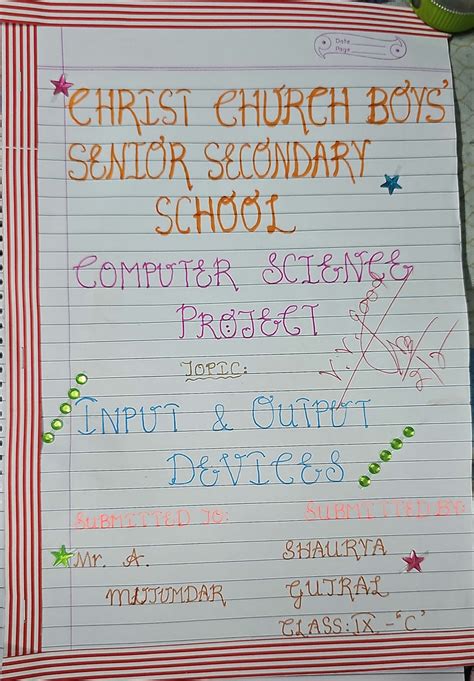 Date
Page
CHRIST CHURCH BOYS'
SENIOR SECONDARY
SCHOOL
COMPUTER SCIENCE
PROJECT
TOPIC:
INPUT & OUTPUT
DEVICES
SUBMITTED TO:
SUBMITTED BY:
Mr. A.
MUJUMDAR
SHAURYA
GUJRAL
CLASS: IX - "C"